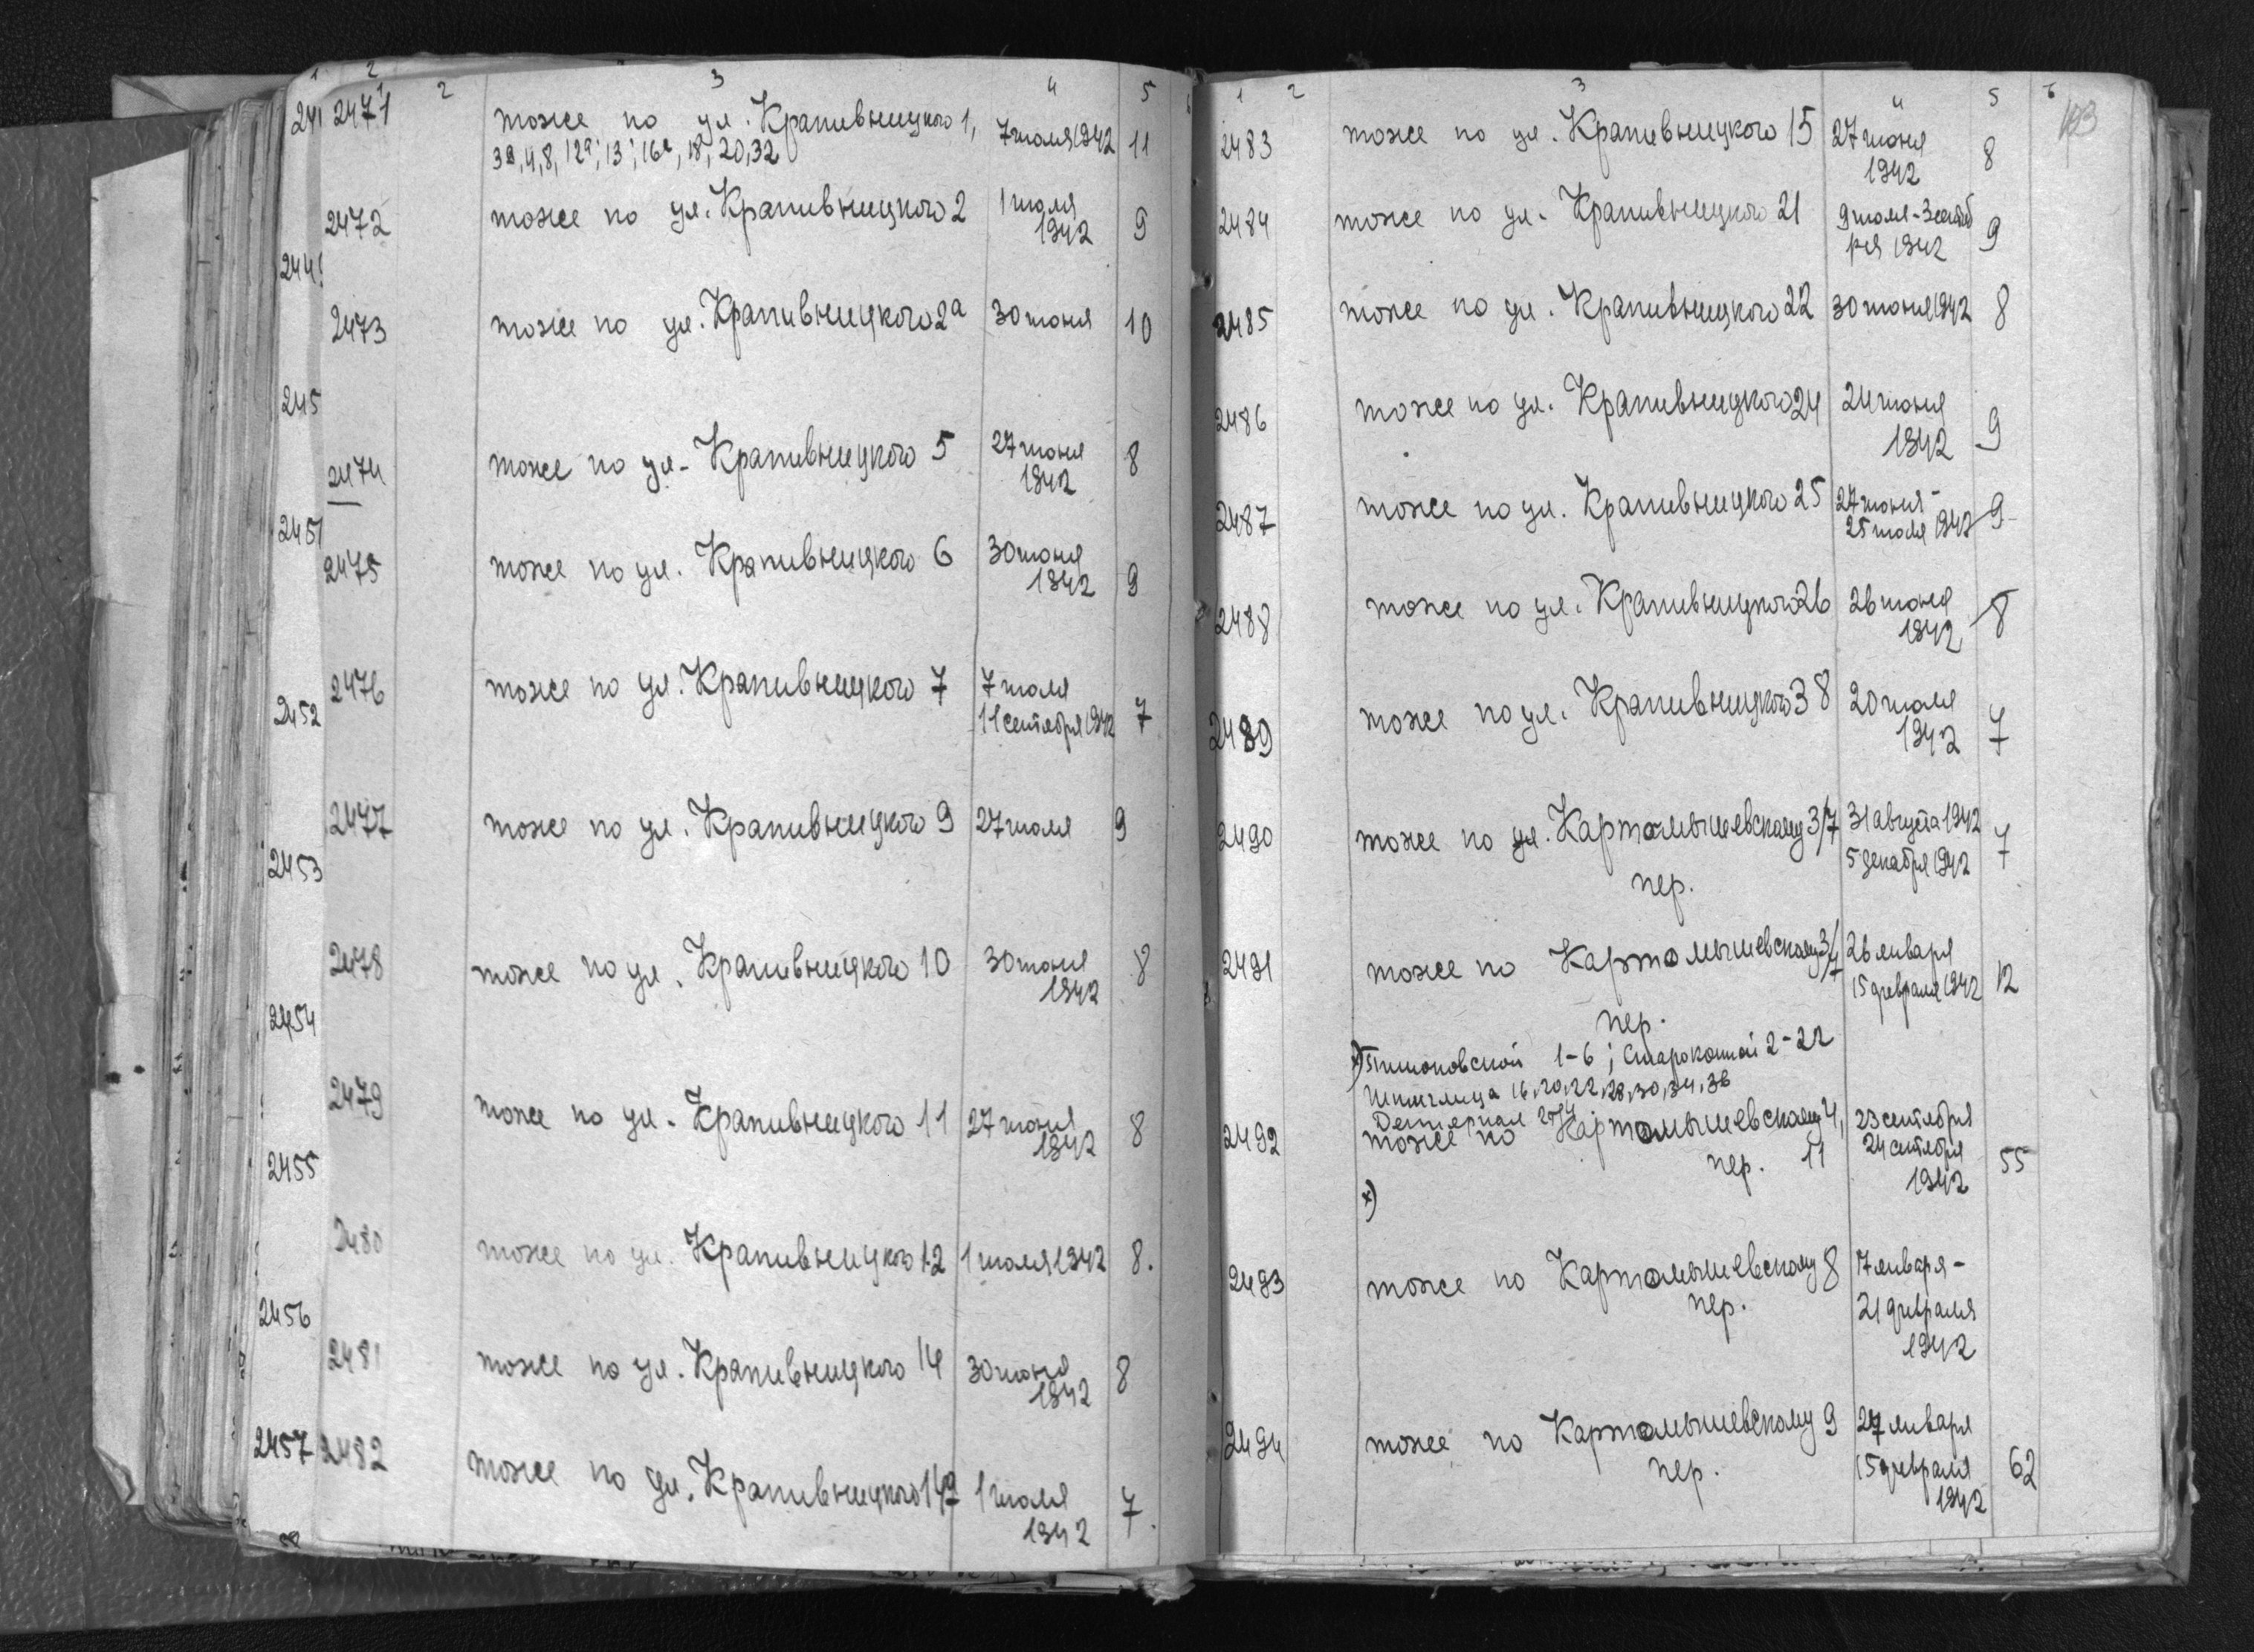 1 2 3 4 5
2471 тоже по ул. Крапивницкого 1, 7 июля 1942 11
3а, 4, 8, 12а, 13, 16а, 18, 20, 32
2472 тоже по ул. Крапивницкого 2 1 июля 1942 9
2473 тоже по ул. Крапивницкого 2а 30 июня 10
2474 тоже по ул. Крапивницкого 5 27 июня 1942 8
2475 тоже по ул. Крапивницкого 6 30 июня 1942 9
2476 тоже по ул. Крапивницкого 7 7 июля
11 сентября 1942 7
2477 тоже по ул. Крапивницкого 9 27 июля 9
2478 тоже по ул. Крапивницкого 10 30 июня 1942 8
2479 тоже по ул. Крапивницкого 11 27 июня 1942 8
2480 тоже по ул. Крапивницкого 12 1 июля 1942 8.
2481 тоже по ул. Крапивницкого 14 30 июня 1942 8
2482 тоже по ул. Крапивницкого 1 июля 1942 7.
2452
2453
2454
2455
2456
2457
1 2 3 4 5 6
2483 тоже по ул. Крапивницкого 15 27 июня 1942 8
2484 тоже по ул. Крапивницкого 21 9 июля - 3 сентяб
ря 1942 9
2485 тоже по ул. Крапивницкого 22 30 июня 1942 8
2486 тоже по ул. Крапивницкого 24 24 июня 1942 9
2487 тоже по ул. Крапивницкого 25 27 июня -
25 июля 1942 9
2488 тоже по ул. Крапивницкого 26 26 июня 1942 8
2489 тоже по ул. Крапивницкого 38 20 июля 1942 7
2490 тоже по ул. Картамышевскому 3/7 31 августа 1942
пер. 5 декабря 1942 7
2491 тоже по Картамышевскому 3/7 26 января
пер. 15 февраля 1942 12
х) 1-6; Староконной 2-22
16, 20, 22, 28, 30, 34, 36
2492 тоже по Картамышевскому 4, 23 сентября
пер. 11 24 сентября
1942 55
х)
2493 тоже по Картамышевскому 8 17 января -
пер. 21 февраля
1942
2494 тоже по Картамышевскому 9 27 января
пер. 15 февраля
1942 62